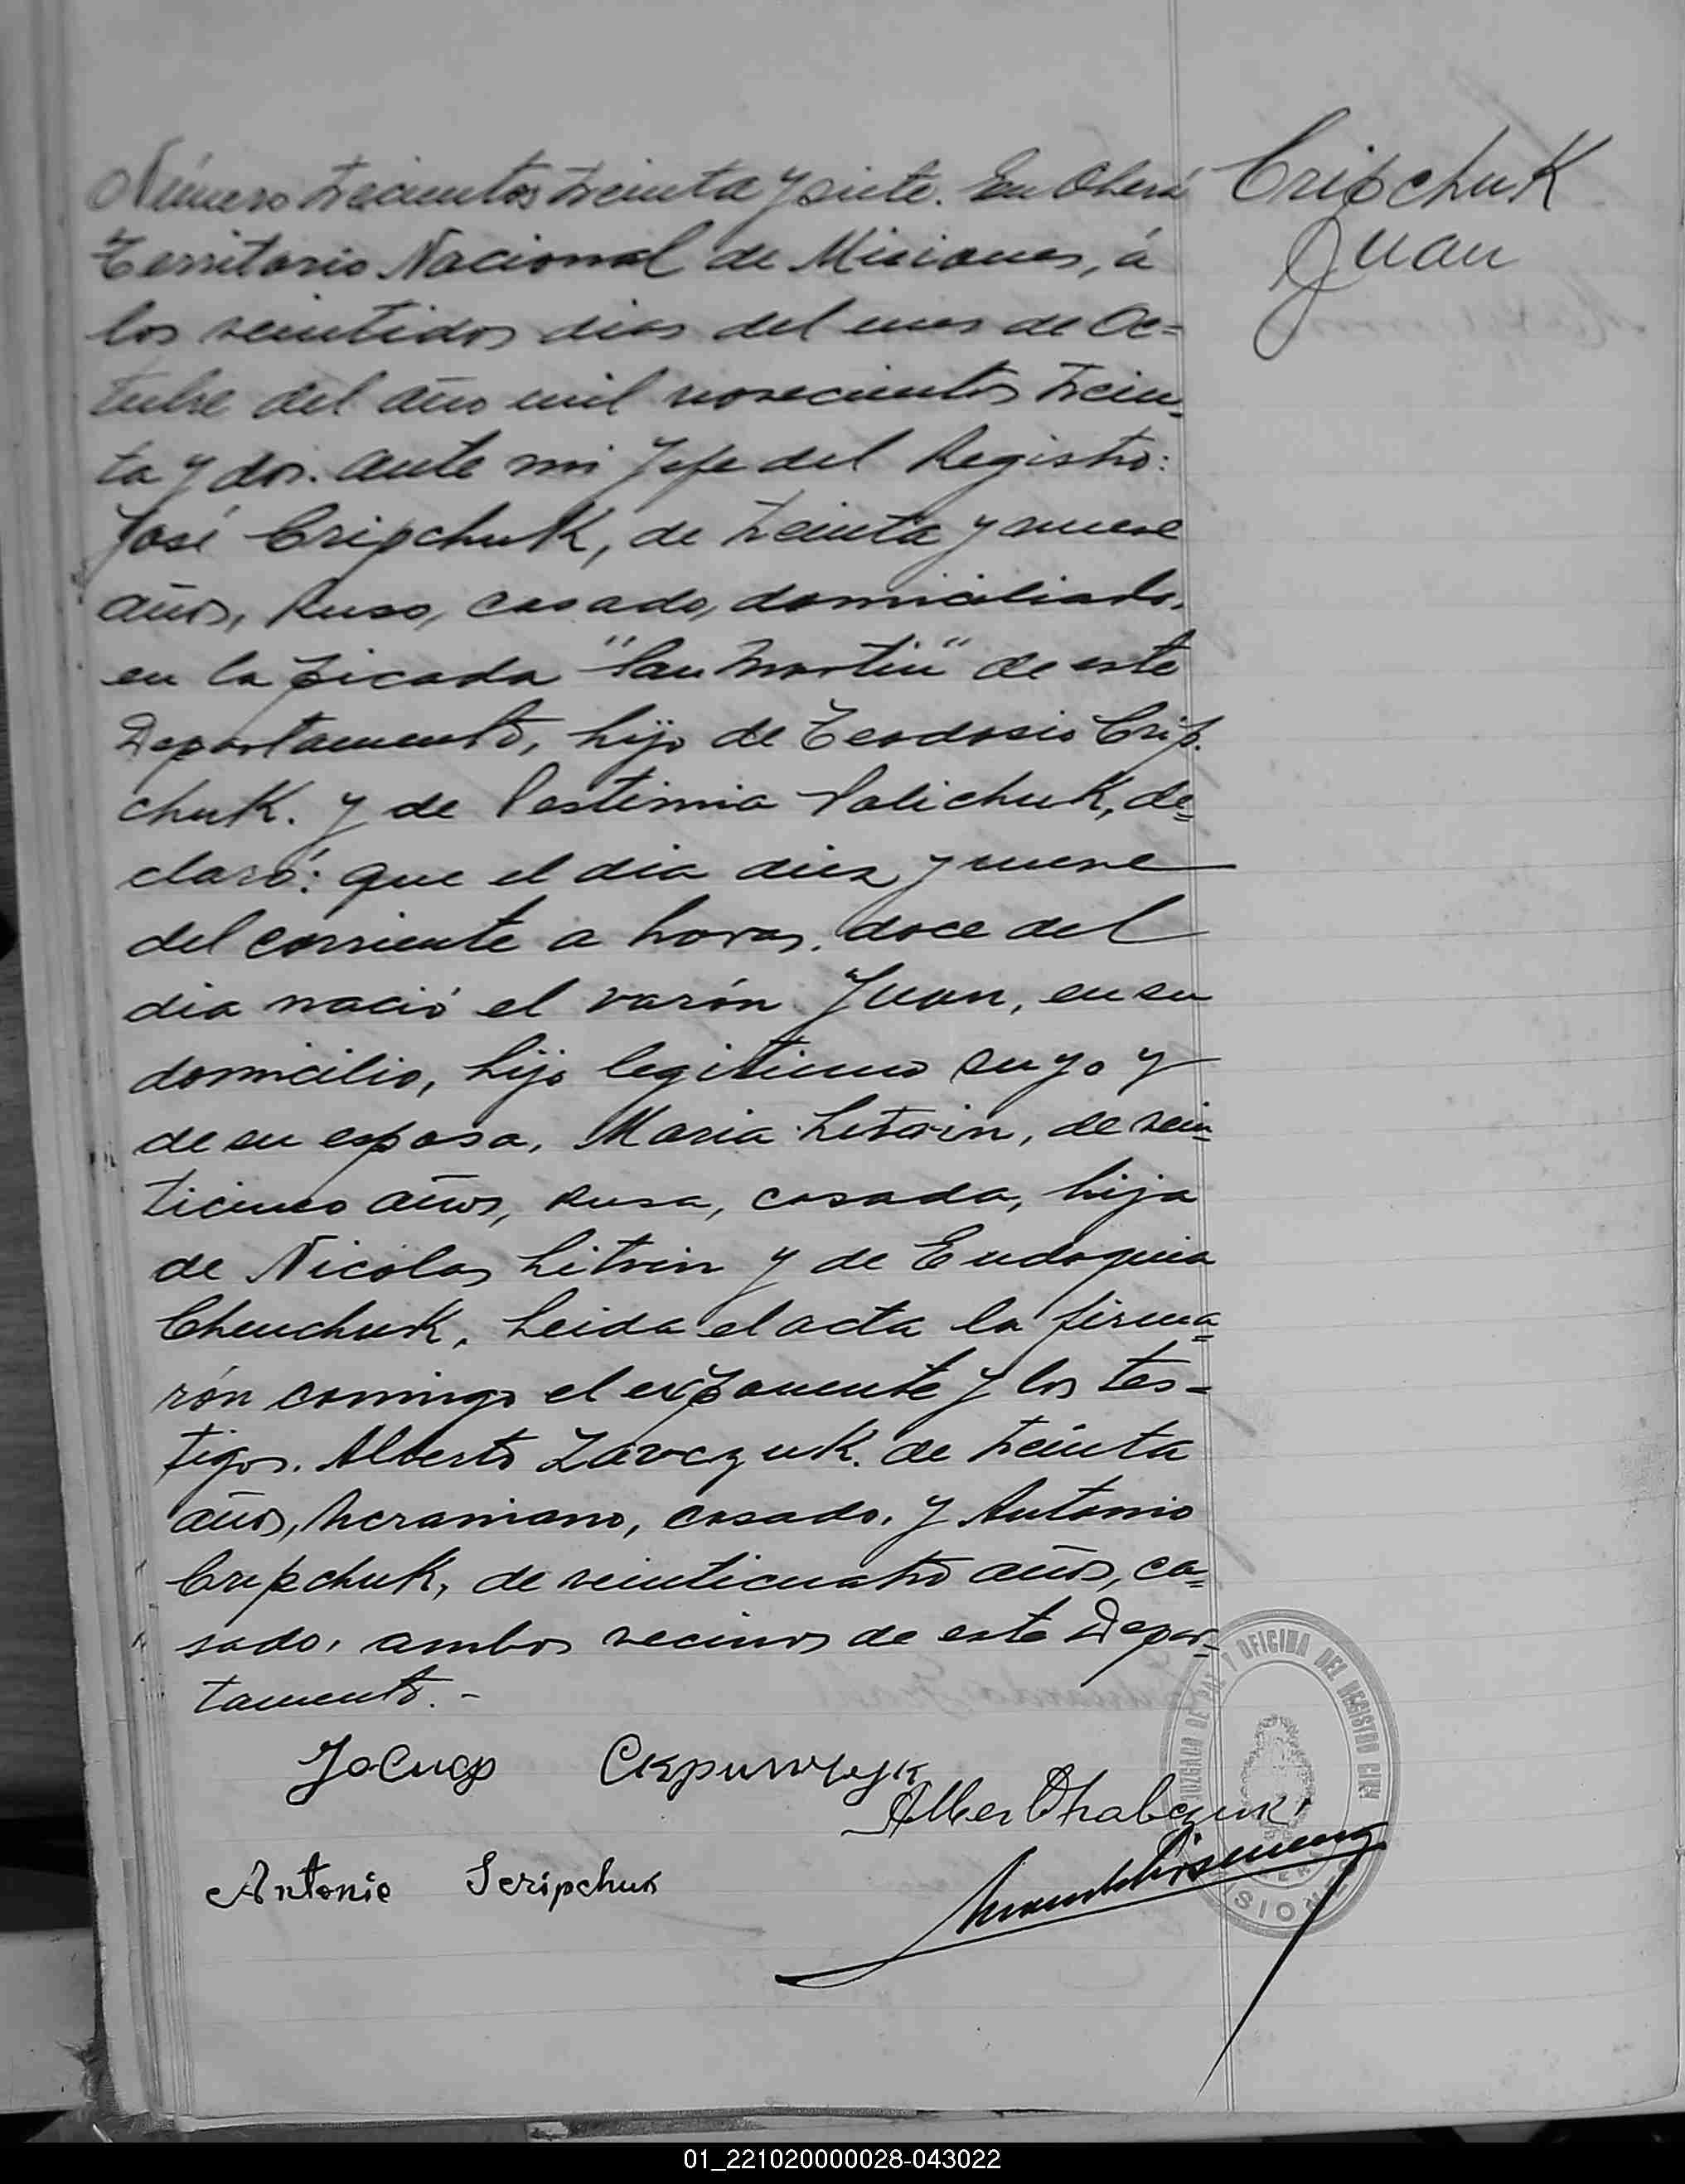 Número trecientos treinta y siete. En Oberá
Territorio Nacional de Misiones, á
los veintidos dias del mes de Oc=
tubre del año mil novecientos trein-
ta y dos. ante mi Jefe del Registro:
José Cripchuk, de treinta y nueve
años, Ruso, casado, domiciliado,
en la picada "San Martin" de este
Departamento, hijo de Teodosio Crip-
chuk. y de Pestimia Palichuk, de=
claró: que el dia diez y nueve
del corriente a horas, doce del
dia nació el varón Juan, en su
domicilio, hijo legitimo suyo y
de su esposa, Maria Litvin, de vein-
ticinco años, Rusa, casada, hija
de Nicolas Litvin y de Eudoquia
Chuchuk, Leida el acta la firma=
rón comingo el exponente y los tes-
tigos. Alberto Zavczuk. de treinta
años, Ucraniano, casado. y Antonio
Cripchuk, de veinticuatro años, ca=
sado, ambos vecinos de este Depar-
tamento. -
Cripchuk
Juan
Йосиф Скрипчук
Antonie Scripchuk
JUZGADO DE PAZ Y OFICINA DEL REGISTRO CIVIL
MISIONES
01_221020000028-043022